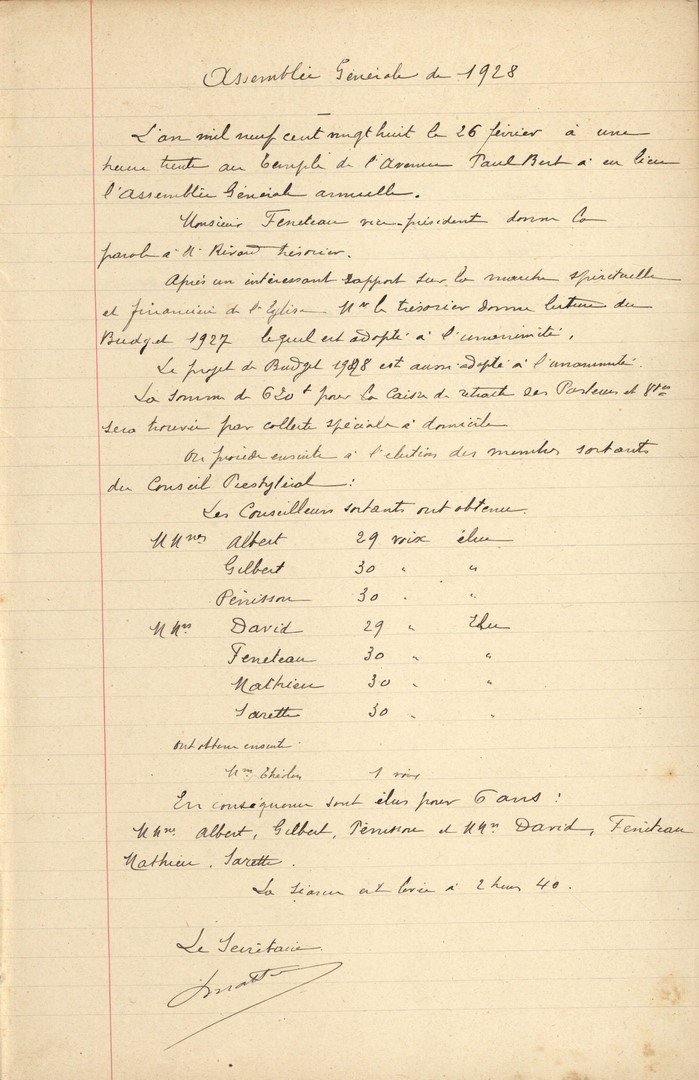 Assemblée Générale de 1928
L'an mil neuf cent vingt huit le 26 février à une
heure trente au Temple de l'Avenue Paul Bert à eu lieu
l'Assemblée Générale annuelle.
Monsieur Feneteau vice-président donne la
parole à Mr trésorier.
Après un intéressant rapport sur la marche spirituelle
et financière de l'Eglise. Mr le trésorier donne lecture du
Budget 1927 lequel est adopté à l'unanimité.
Le projet de Budget 1928 est aussi adopté à l'unanimité.
La somme de 630f pour la Caisse de retraite des Pasteurs et
sera trouvée par collecte spéciale à domicile
On procède ensuite à l'élections des membres sortants
du Conseil Presbytéral :
Les Conseillers sortants ont obtenu
MMmes Albert 29 voix élue
Gilbert 30 " "
Pénisson 30 " "
MMrs David 29 " Elu
Feneteau 30 " "
Mathieu 30 " "
Sarette 30 " "
Ont obtenu ensuite
1 voix
En conséquence sont élus pour 6 ans :
MMmes Albert, Gilbert, Pénisson et MMrs David, Féneteau
Mathieu, Sarette.
La séance est levée à 2 heures 40.
Le Secrétaire